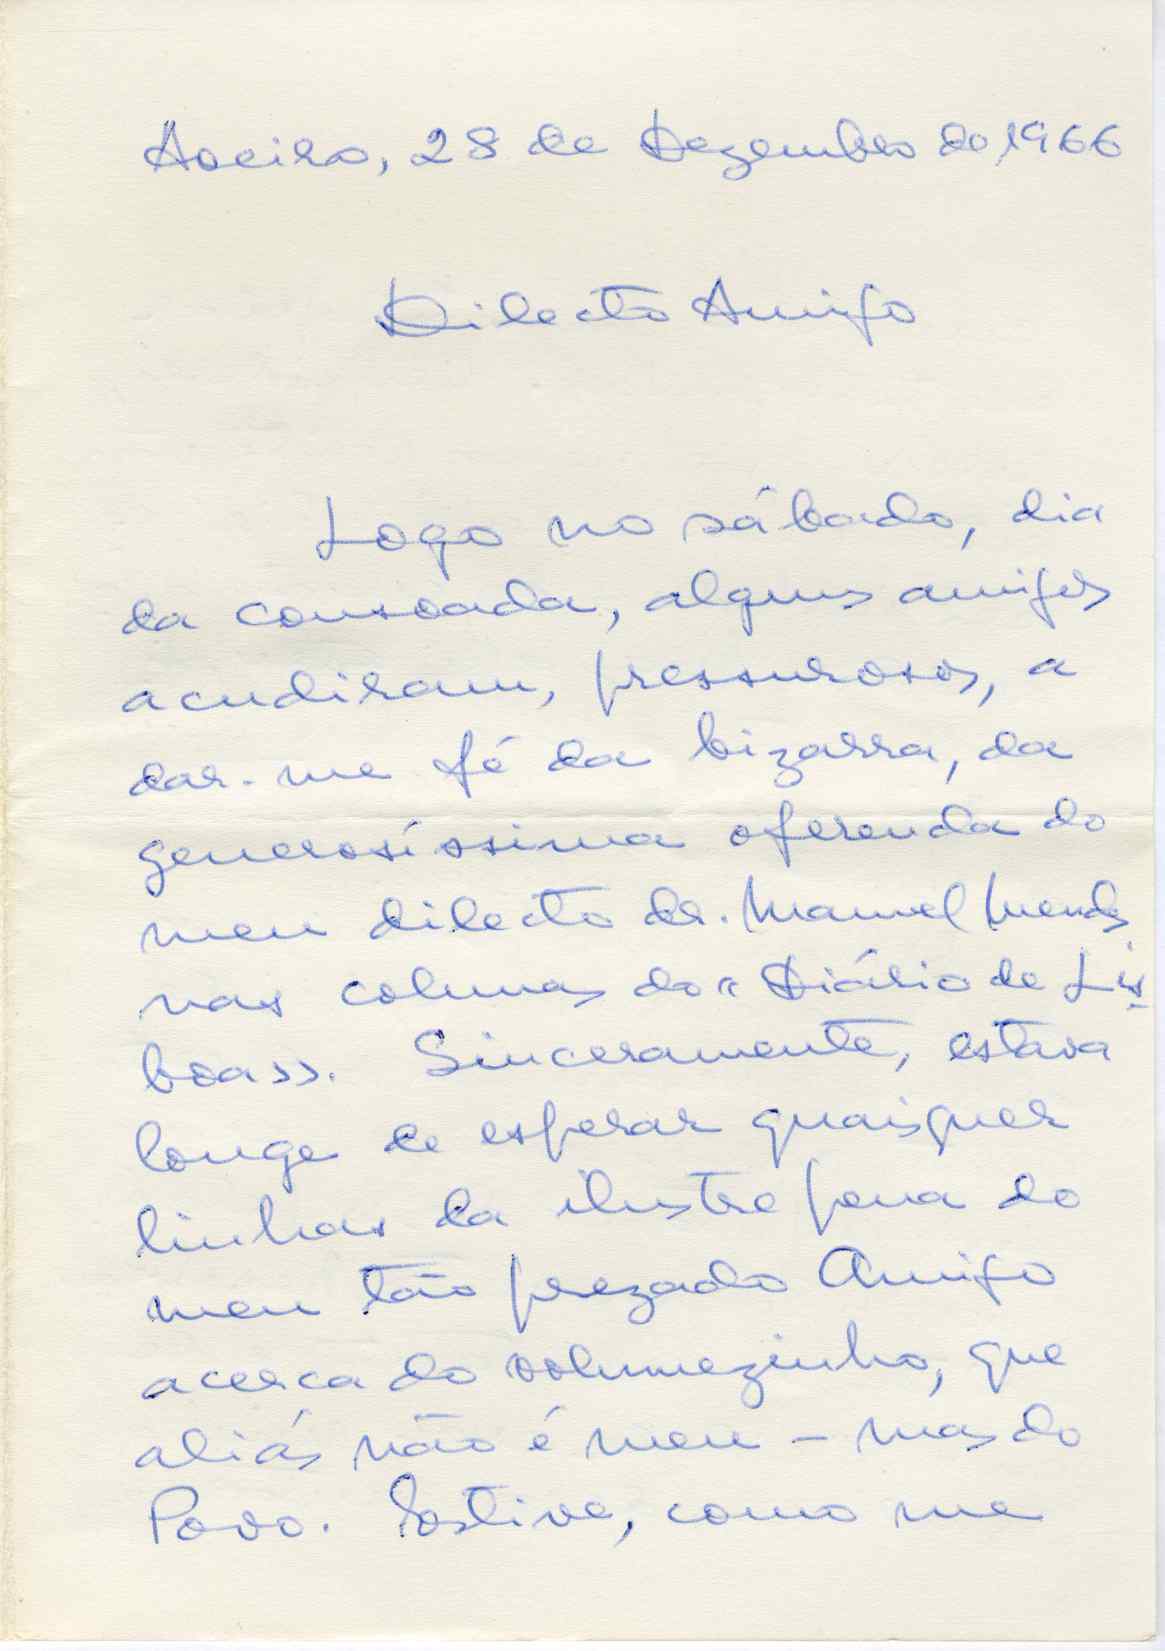 Aveiro, 28 de Dezembro de 1966
Dilecto Amigo
Logo no sábado, dia
da consoada, alguns amigos
acudiram, pressurosos, a
dar-me fé da bizarra, da
generosíssima oferenda do
meu dilecto dr. Manuel Mendes
nas colunas do «Diário de Lis-
boa». Sinceramente, estava
longe de esperar quaisquer
linhas da ilustre pena do
meu tão prezado Amigo
acerca do volumezinho, que
aliás não é meu – mas do
Povo. Estive, como me